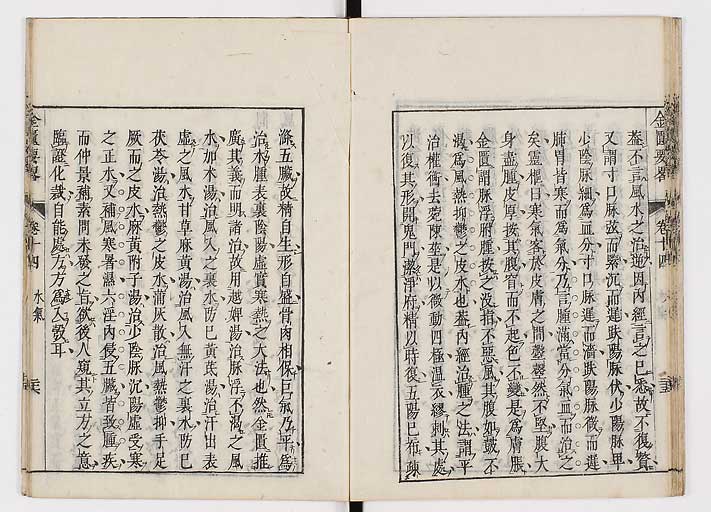 金匱要略 卷十四
蓋不言風水之治逆因內經言之已悉故不復贅
又謂寸口脉弦而緊沉而遲趺陽脉伏少陽脉卑
少陰脉細爲血分寸口脉遲而濇趺陽脉微而遲
肺胃皆寒而爲氣分乃言腫滿當分氣血而治之
矣靈樞曰寒氣客於皮膚之間鼟鼟然不堅腹大
身盡腫皮厚按其腹窅而不起色不變是爲膚脹
金匱謂脉浮胕腫按之沒指不惡風其腹如鼓不
渴爲風熱抑鬱之皮水也蓋內經治腫之法謂平
治權衡去菀陳莝是以微動四極溫衣繆刺其處
以復其形開鬼門潔淨府精以時復五陽已布疎
滌五臟故精自生形自盛骨肉相保巨氣乃平爲
治水腫表裏陰陽虛實寒熱之大法也然金匱推
廣其義而明諸治故用越婢湯治脉浮不渴之風
水加朮湯治風入之裏水防已黃茋湯治汗出表
虛之風水甘草麻黃湯治風入無汗之裏水防已
茯苓湯治熱鬱之皮水蒲灰散治風熱鬱抑手足
厥而之皮水麻黃附子湯治少陰脉沉陽虛受寒
之正水又補風寒暑濕六淫內侵五臟皆致腫疾
而仲景補素問未發之旨欲後人窺其立方之意
臨證化裁自能處方方爲入彀耳
金匱要略 卷十四 水氣